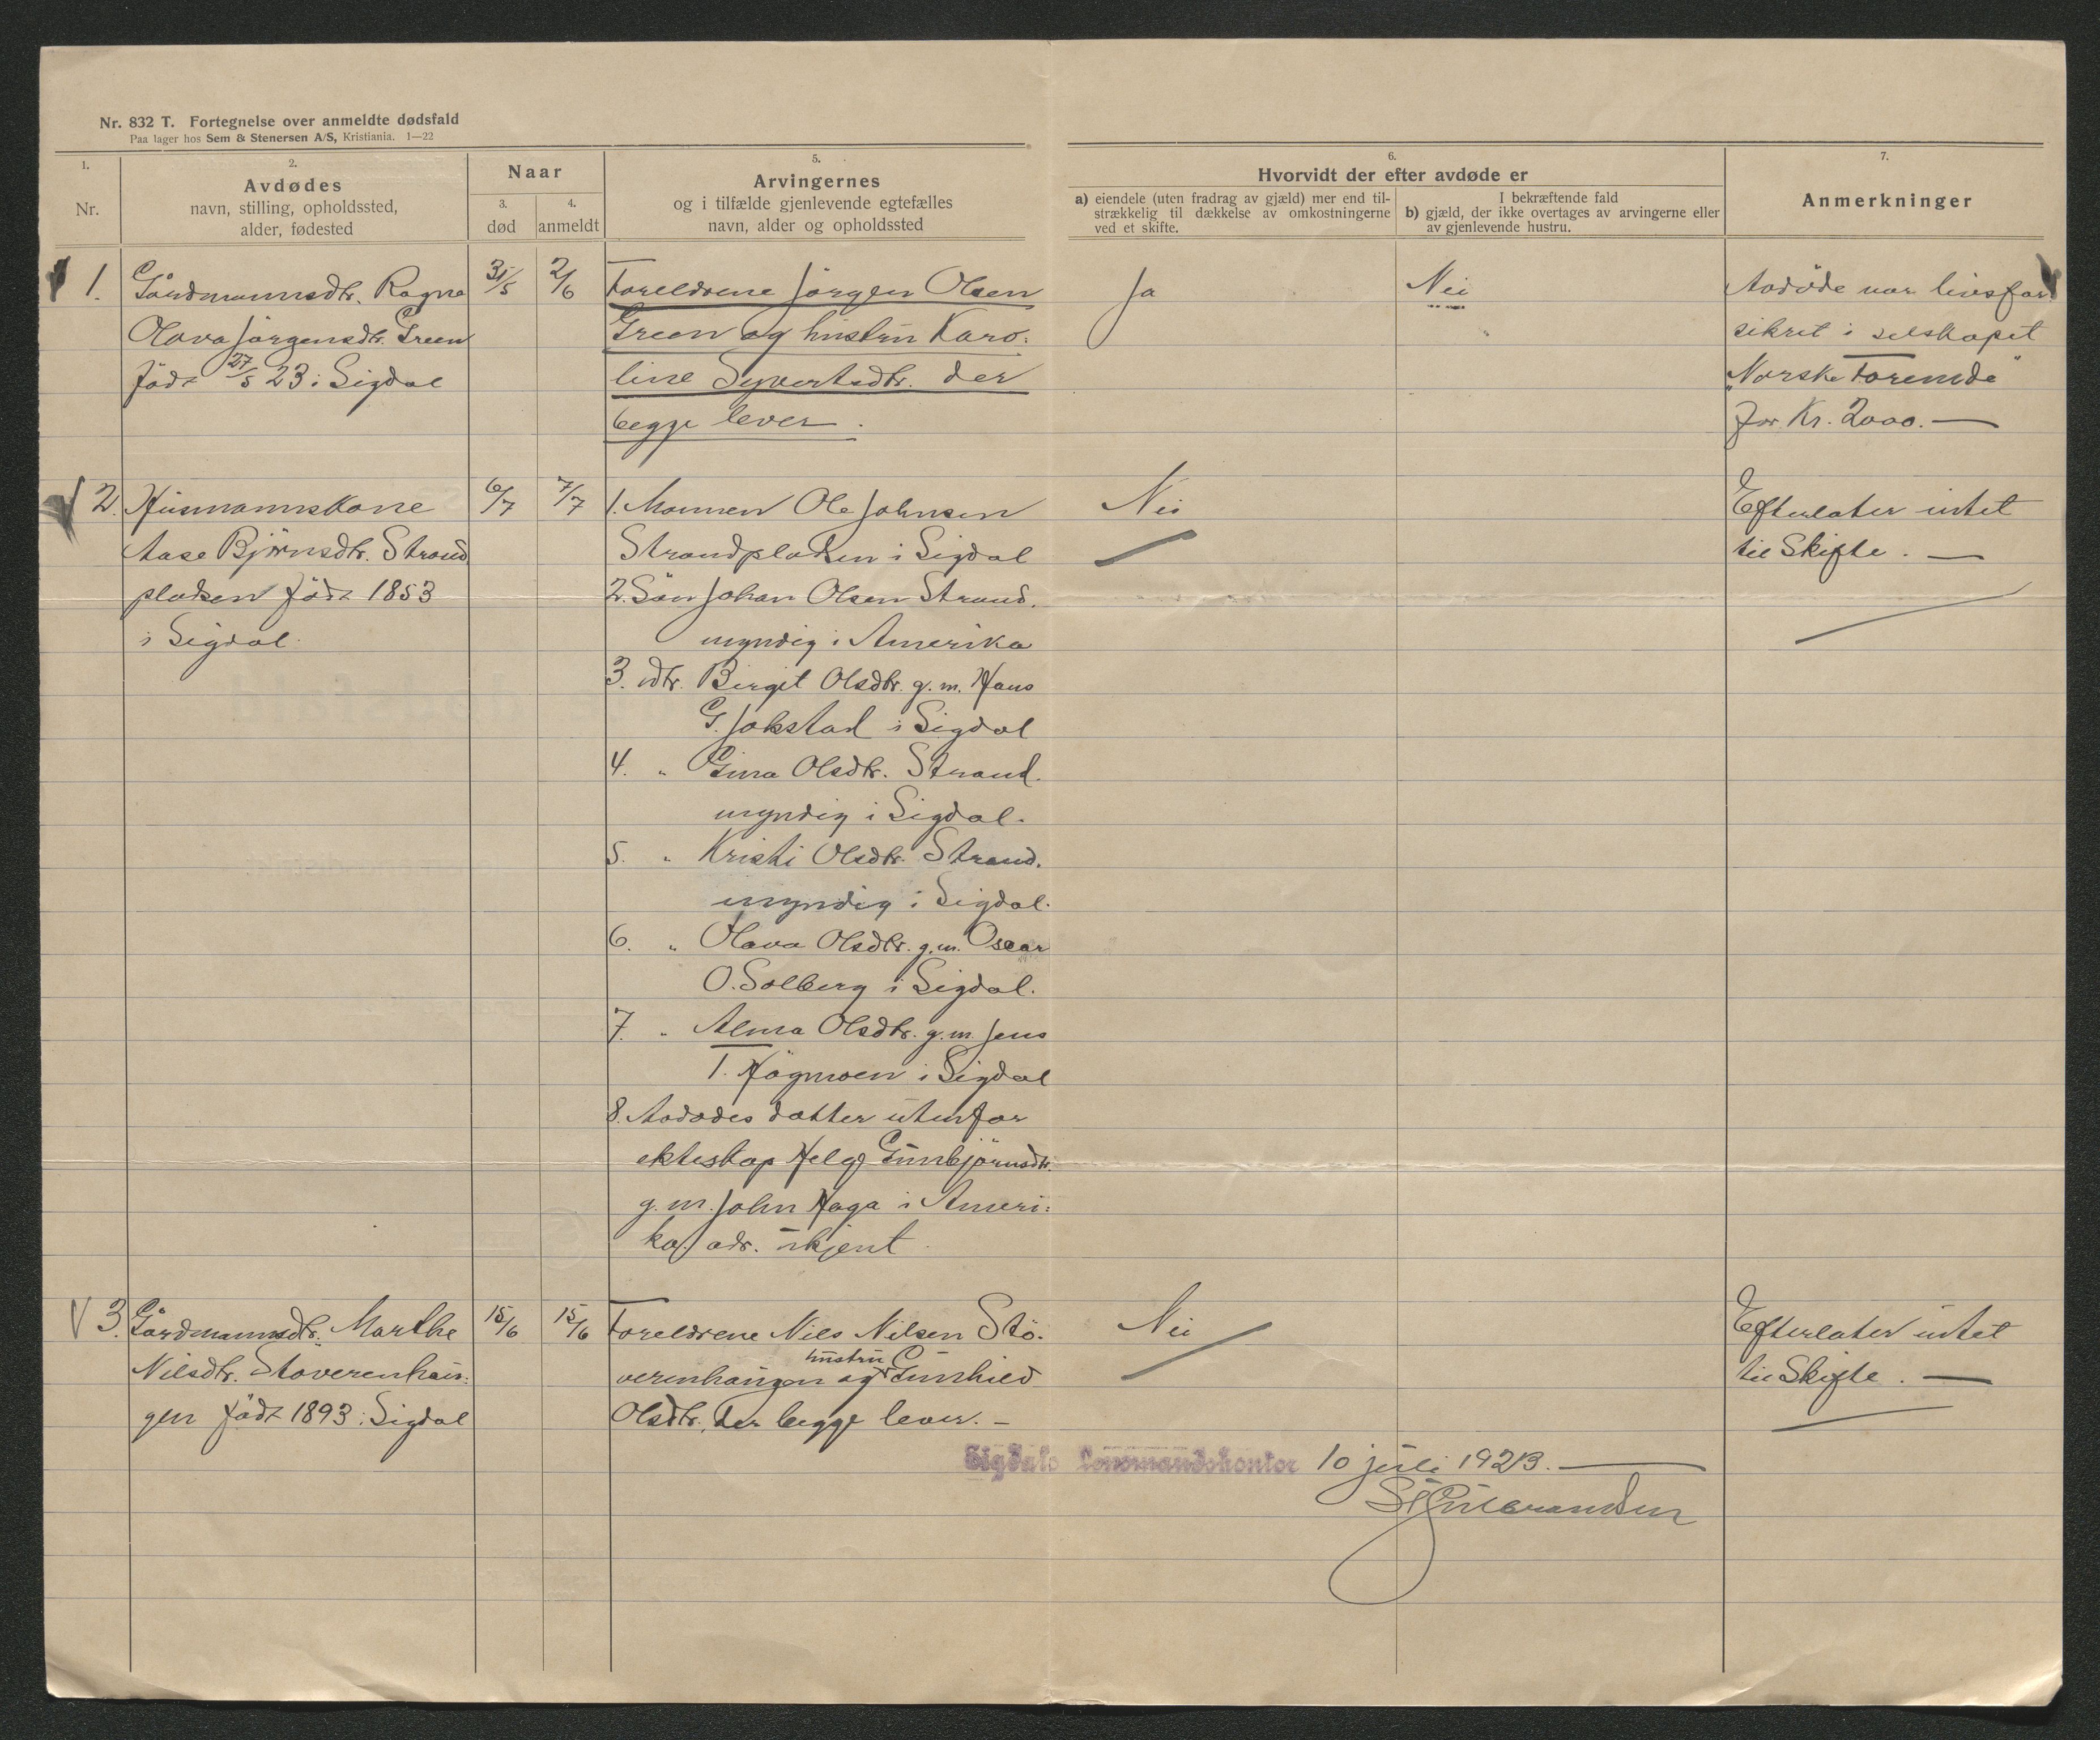 Nr. 832 T. Fortegnelse over anmeldte dødsfald
Paa lager hos Sem & Stenersen A/S, Kristiania. 1—22
1.
Nr.
2.
Avdødes
navn, stilling, opholdssted,
alder, fødested
Naar
3.
død
4.
anmeldt
5.
Arvingernes
og i tilfælde gjenlevende egtefælles
navn, alder og opholdssted
6.
Hvorvidt der efter avdøde er
a) eiendele (uten fradrag av gjæld) mer end til-
strækkelig til dækkelse av omkostningerne
ved et skifte.
I bekræftende fald
b) gjæld, der ikke overtages av arvingerne eller
av gjenlevende hustru.
7.
Anmerkninger
1.
Gårdmannsdtr. Ragna
Olava Jörgensdtr. Green
född 27/5 23 i Sigdal
31/5
2/6
Foreldrene Jörgen Olsen
Green og hustru Karo-
line Syvertsdtr. der
begge lever.
Ja
Nei
Avdöde var livsfor
sikret i selskapet
"Norske Forenede"
for Kr. 2000.—
2.
Husmannskone
Aase Björnsdtr. Strand
pladsen född 1853
i Sigdal.
6/7
7/7
1. Mannen Ole Johnsen
Strandpladsen i Sigdal
2. Sön Johan Olsen Strand.
myndig i Amerika
3. dtr. Birgit Olsdtr. g.m. Hans
G. Jokstad i Sigdal
4. " Gina Olsdtr. Strand.
myndig i Sigdal.
5. " Kristi Olsdtr. Strand.
myndig i Sigdal.
6. " Olava Olsdtr. g.m. Oscar
O. Solberg i Sigdal.
7. " Alma Olsdtr. g.m. Jens
T. Högmoen i Sigdal
8. Avdødes datter utenfor
ekteskap Helge Gunbjörnsdtr.
g.m. John Haga i Ameri-
ka, adr. ukjent.
Nei
Efterlater intet
til Skifte. —
3.
Gårdmannsdtr. Marthe
Nilsdtr. Stöverenhaug-
gen född 1893 i Sigdal
15/6
15/6
Foreldrene Nils Nilsen Stö-
verenhaugen og hustru Gunhild
Olsdtr. der begge lever. —
Nei
Efterlater intet
til Skifte. —
Sigdals lensmandskontor 10 juli 1923. —